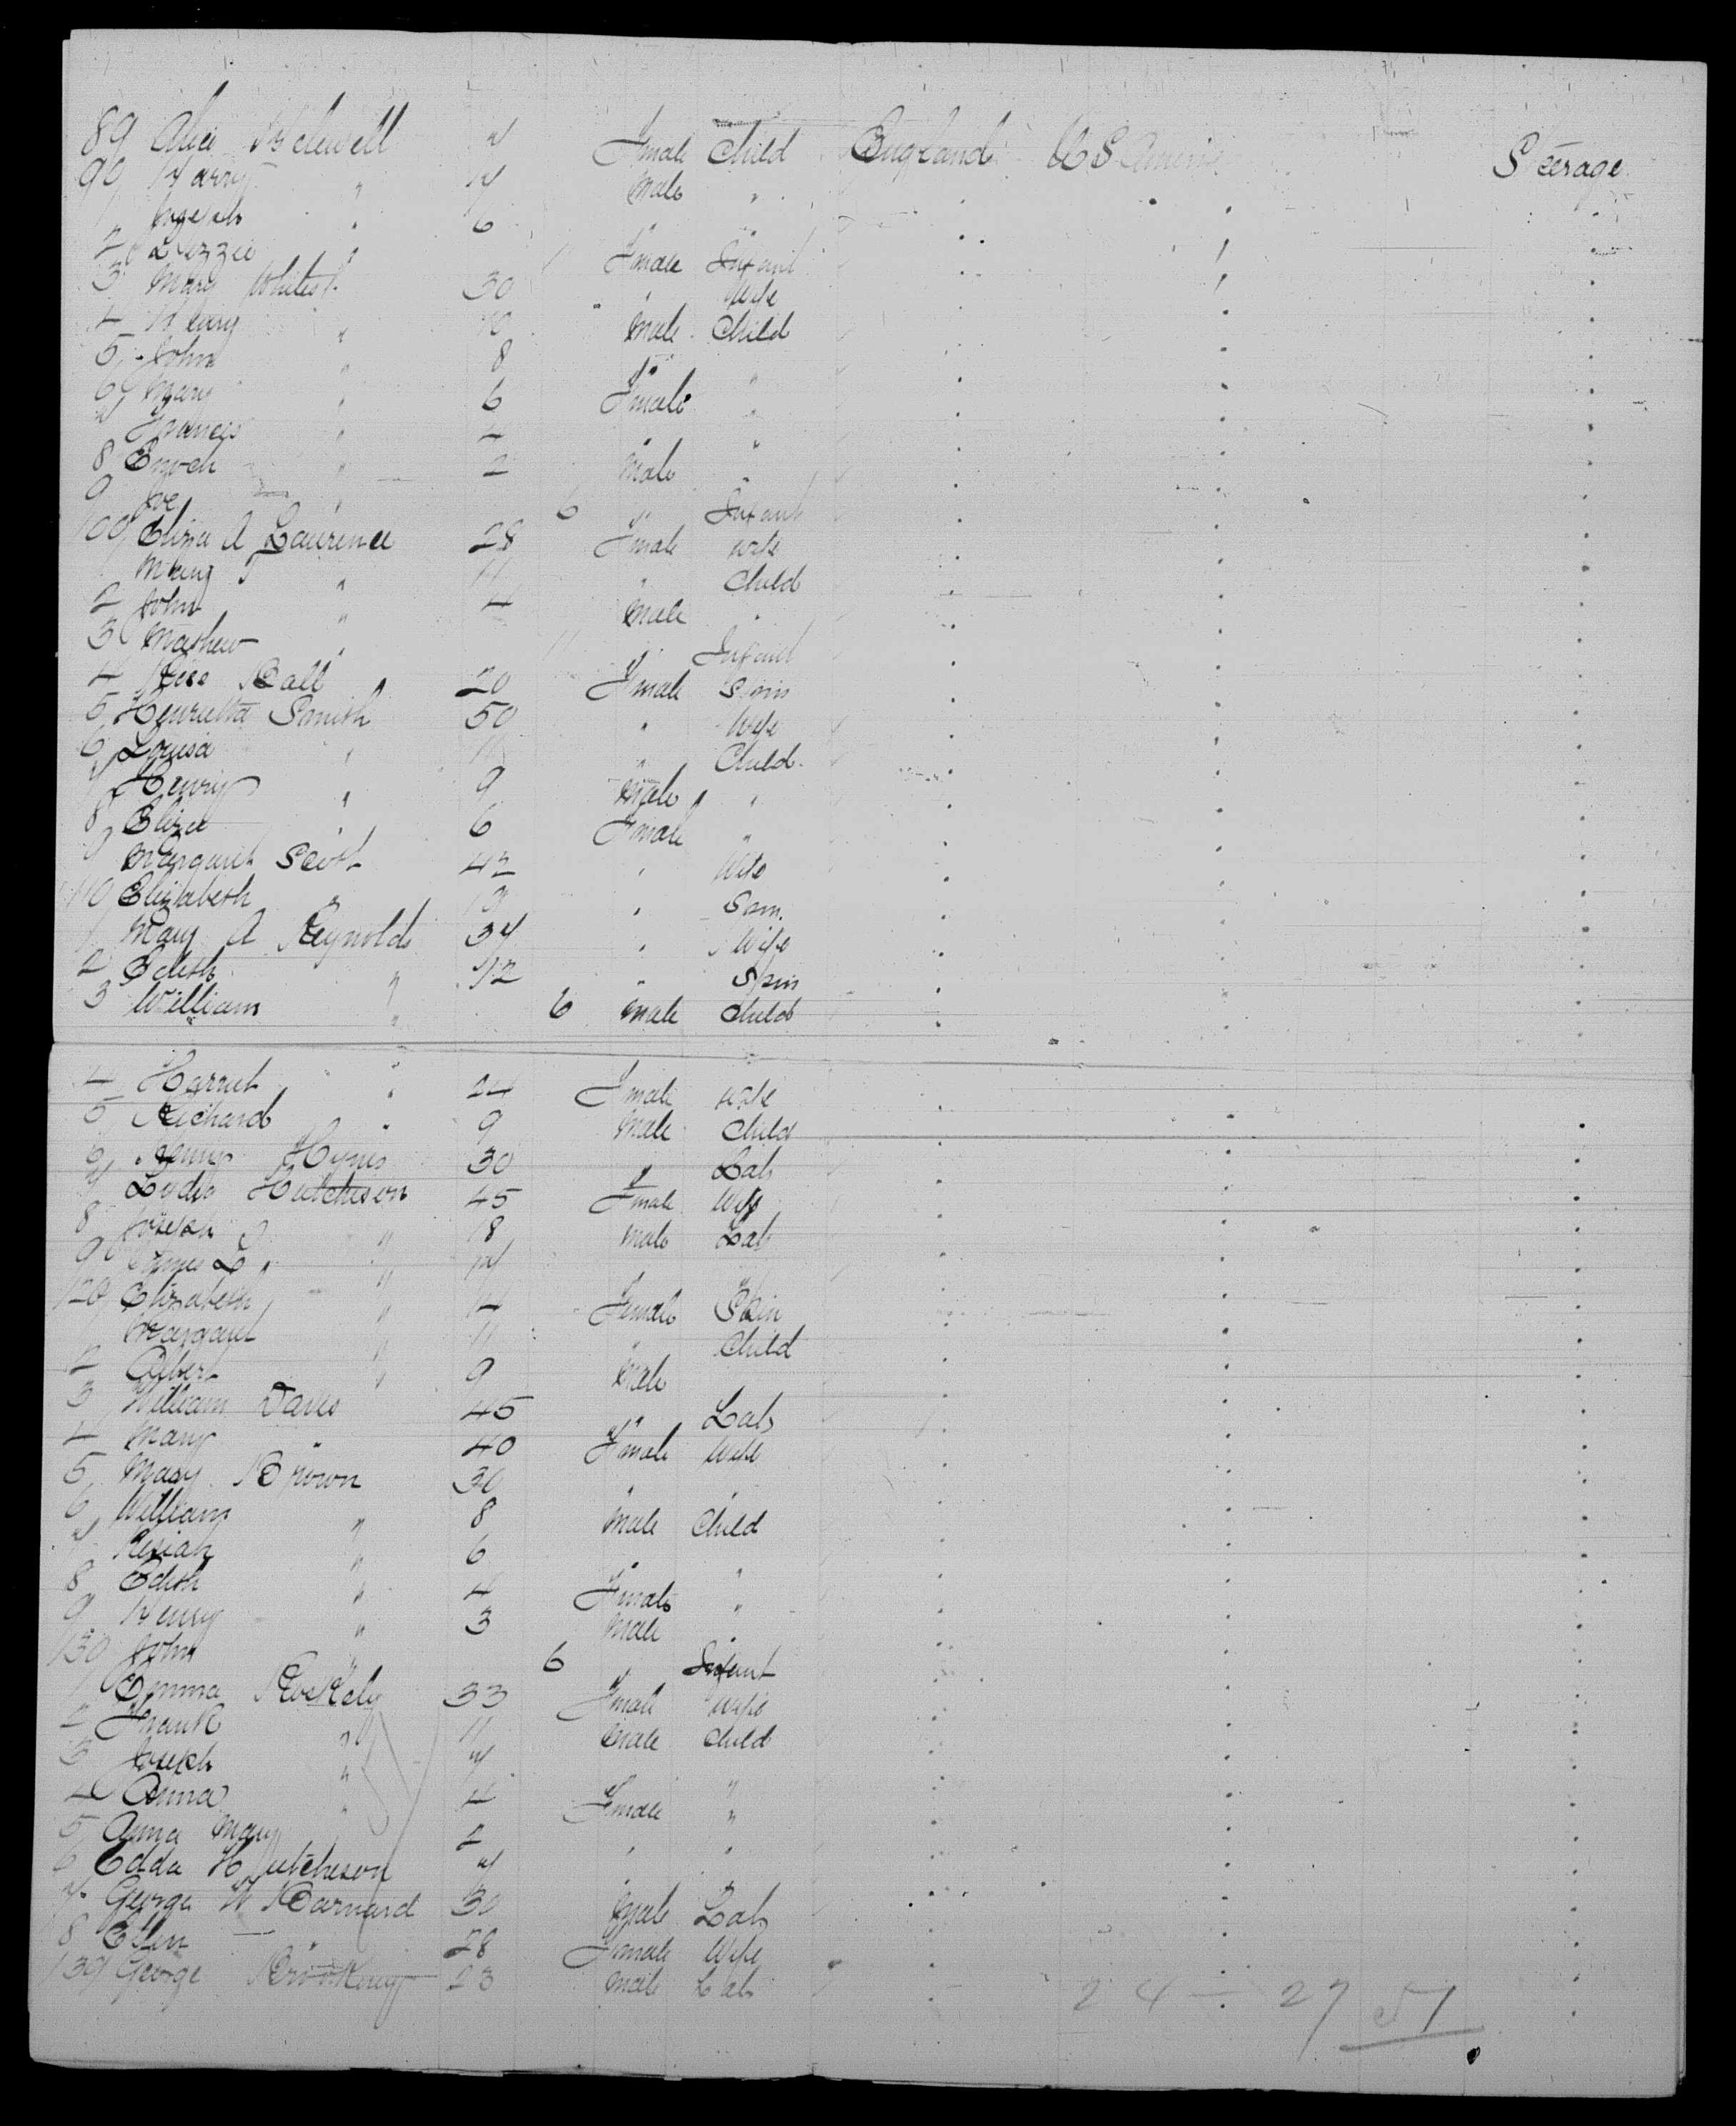 89 Alice 4 Female Child England U S Steerage
90 Harry " 4 Male "
1 Joseph " 6 " "
2 Lizzie " Female Infant
3 Mary 30 " Wife
4 Henry " 10 Male Child
5 John " 8 " "
6 Mary " 6 Female "
7 Frances " 4 " "
8 Enoch " 2 Male "
9 Joe " 6 " Infant
100 Eliza A Laurence 28 Female Wife
1 " 11 " Child
2 John " 4 Male "
3 Mathew " 11 " Infant
4 Ball 20 Female Spin
5 Henrietta Smith 50 " Wife
6 Louisa " 11 " Child
7 Henry " 9 Male "
8 Eliza " 6 Female "
9 Margaret Scott 42 " Wife
110 Elizabeth " 19 " Spin
1 Mary A Reynolds 34 " Wife
2 Edith " 12 " Spin
3 William " 6 Male Child
4 Harriet " 24 Female Wife
5 Richard " 9 Male Child
6 Hynes 30 " Lab
7 Lydia Hutcheson 45 Female Wife
8 Joseph " 18 Male Lab
9 James L " " "
120 Elizabeth " 14 Female Spin
1 Margaret " 11 " Child
2 Albert " 9 Male
3 William Davis 45 " Lab
4 Mary " 40 Female Wife
5 Mary Brown 30 " "
6 William " 8 Male Child
7 Kesiah " 6 " "
8 Edith " 4 Female "
9 Henry " 3 Male
130 John " 6 " Infant
1 Emma 33 Female Wife
2 Frank " 11 Male Child
3 Joseph " 7 " "
4 Anna " 4 Female "
5 Anna Mary 2 " "
6 Edda Hutcheson 7
7 George W Barnard 30 Male Lab
8 Ellen " 28 Female Wife
139 George 23 Male Lab
24 — 27 51